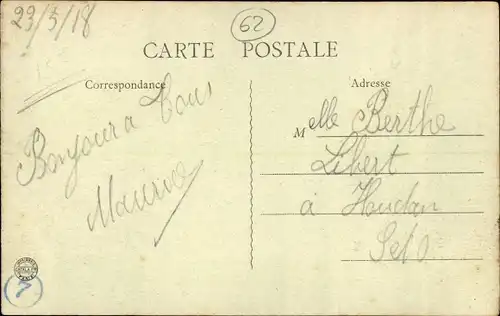 23/5/18
62
CARTE POSTALE
Correspondance
Adresse
Bonjour a Tous
Maurice
Melle Berthe
Libert
à Houdan
S et O
7